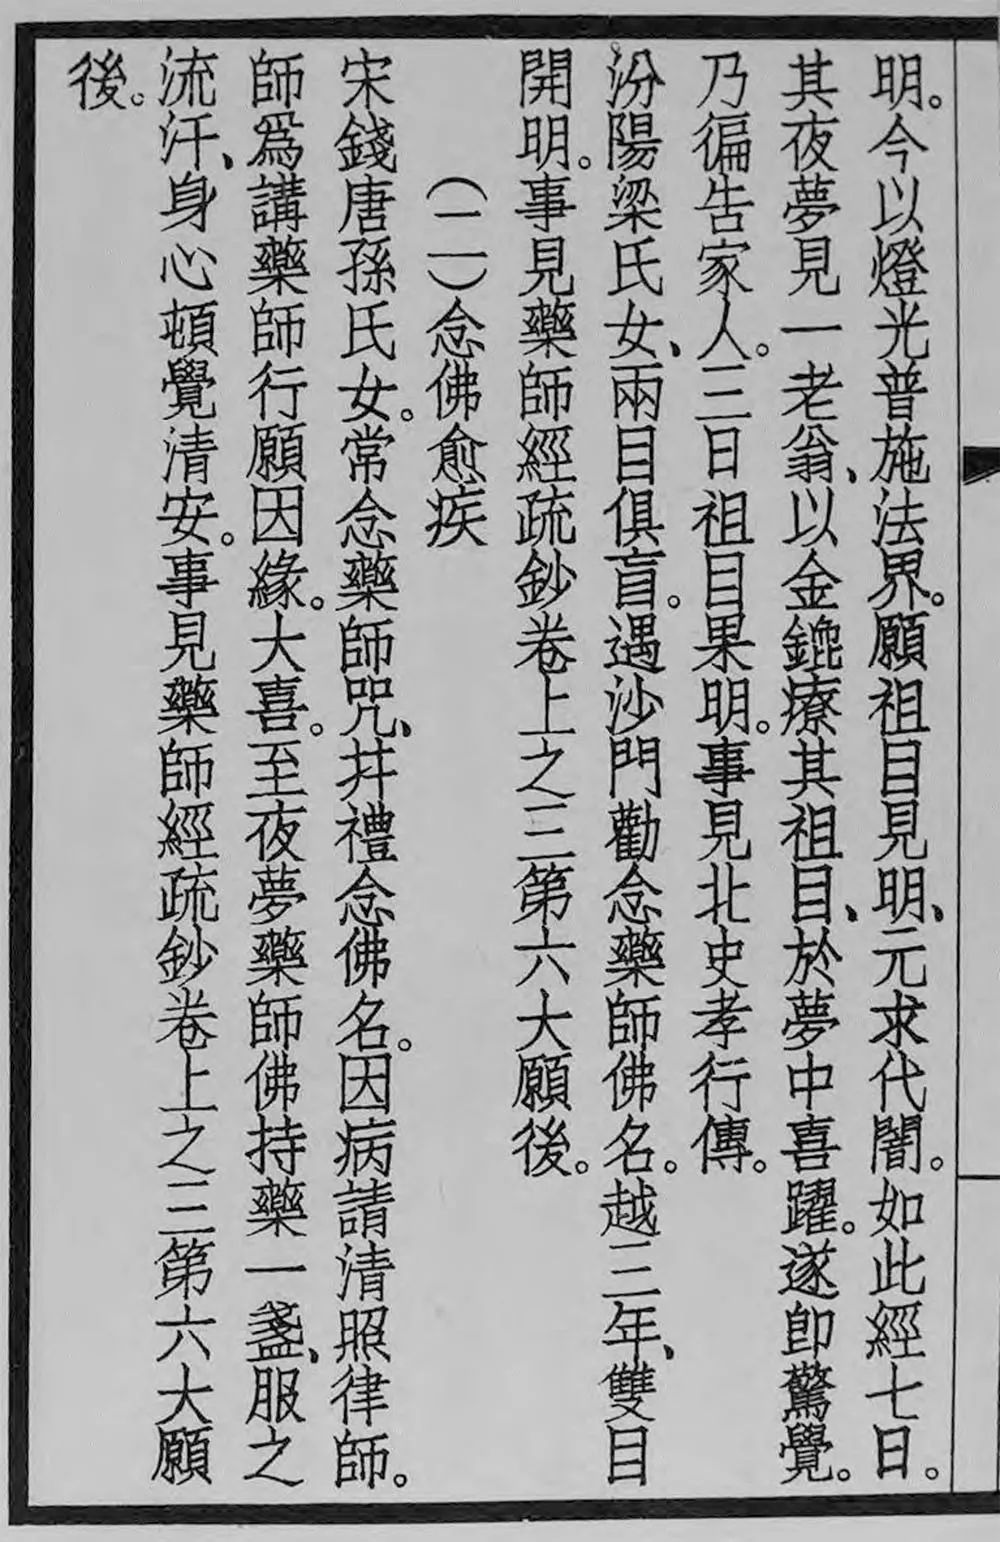 明。今以燈光普施法界。願祖目見明、元求代闇。如此經七日。
其夜夢見一老翁、以金鎞療其祖目、於夢中喜躍。遂即驚覺。
乃徧告家人。三日祖目果明。事見北史孝行傳。
汾陽梁氏女、兩目俱盲。遇沙門勸念藥師佛名。越三年、雙目
開明。事見藥師經疏鈔卷上之三第六大願後。
（二一）念佛愈疾
宋錢唐孫氏女。常念藥師咒、幷禮念佛名。因病請清照律師。
師爲講藥師行願因緣。大喜。至夜夢藥師佛持藥一盞、服之
流汗、身心頓覺清安。事見藥師經疏鈔卷上之三第六大願
後。